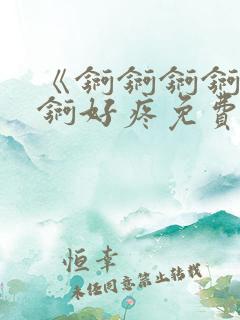 《锕锕锕锕
锕好疼免費
恒幸
未任同意禁止转载